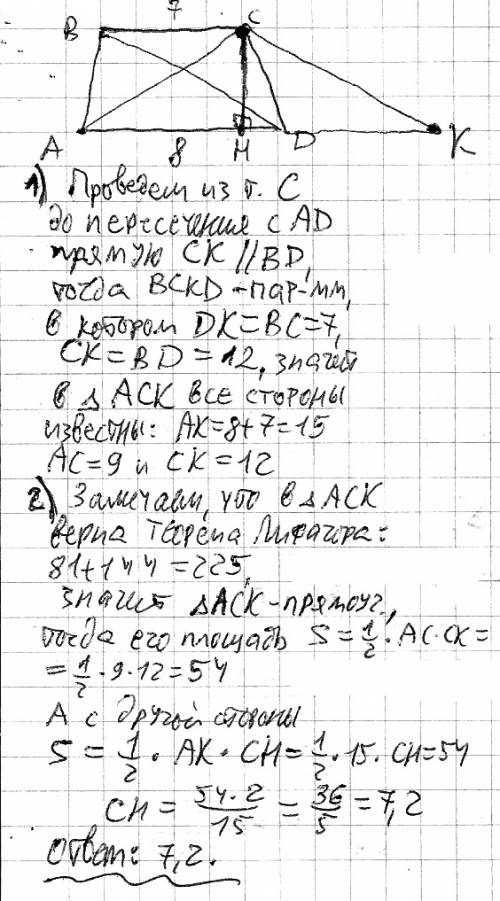 7
B C
A 8 H D K
1) Проведем из т. C
до пересечения с AD
прямую CK || BD,
тогда BCKD - пар-мм,
в котором DK=BC=7,
CK=BD=12, значит
в △ ACK все стороны
известны: AK=8+7=15
AC=9 и CK=12
2) Замечаем, что в △ ACK
верна Теорема Пифагора:
81+144=225,
значит △ACK-прямоуг.,
тогда его площадь S=1/2·AC·CK=
=1/2·9·12=54
А с другой стороны
S=1/2·AK·CH=1/2·15·CH=54
CH=54·2/15=36/5=7,2
Ответ: 7,2.